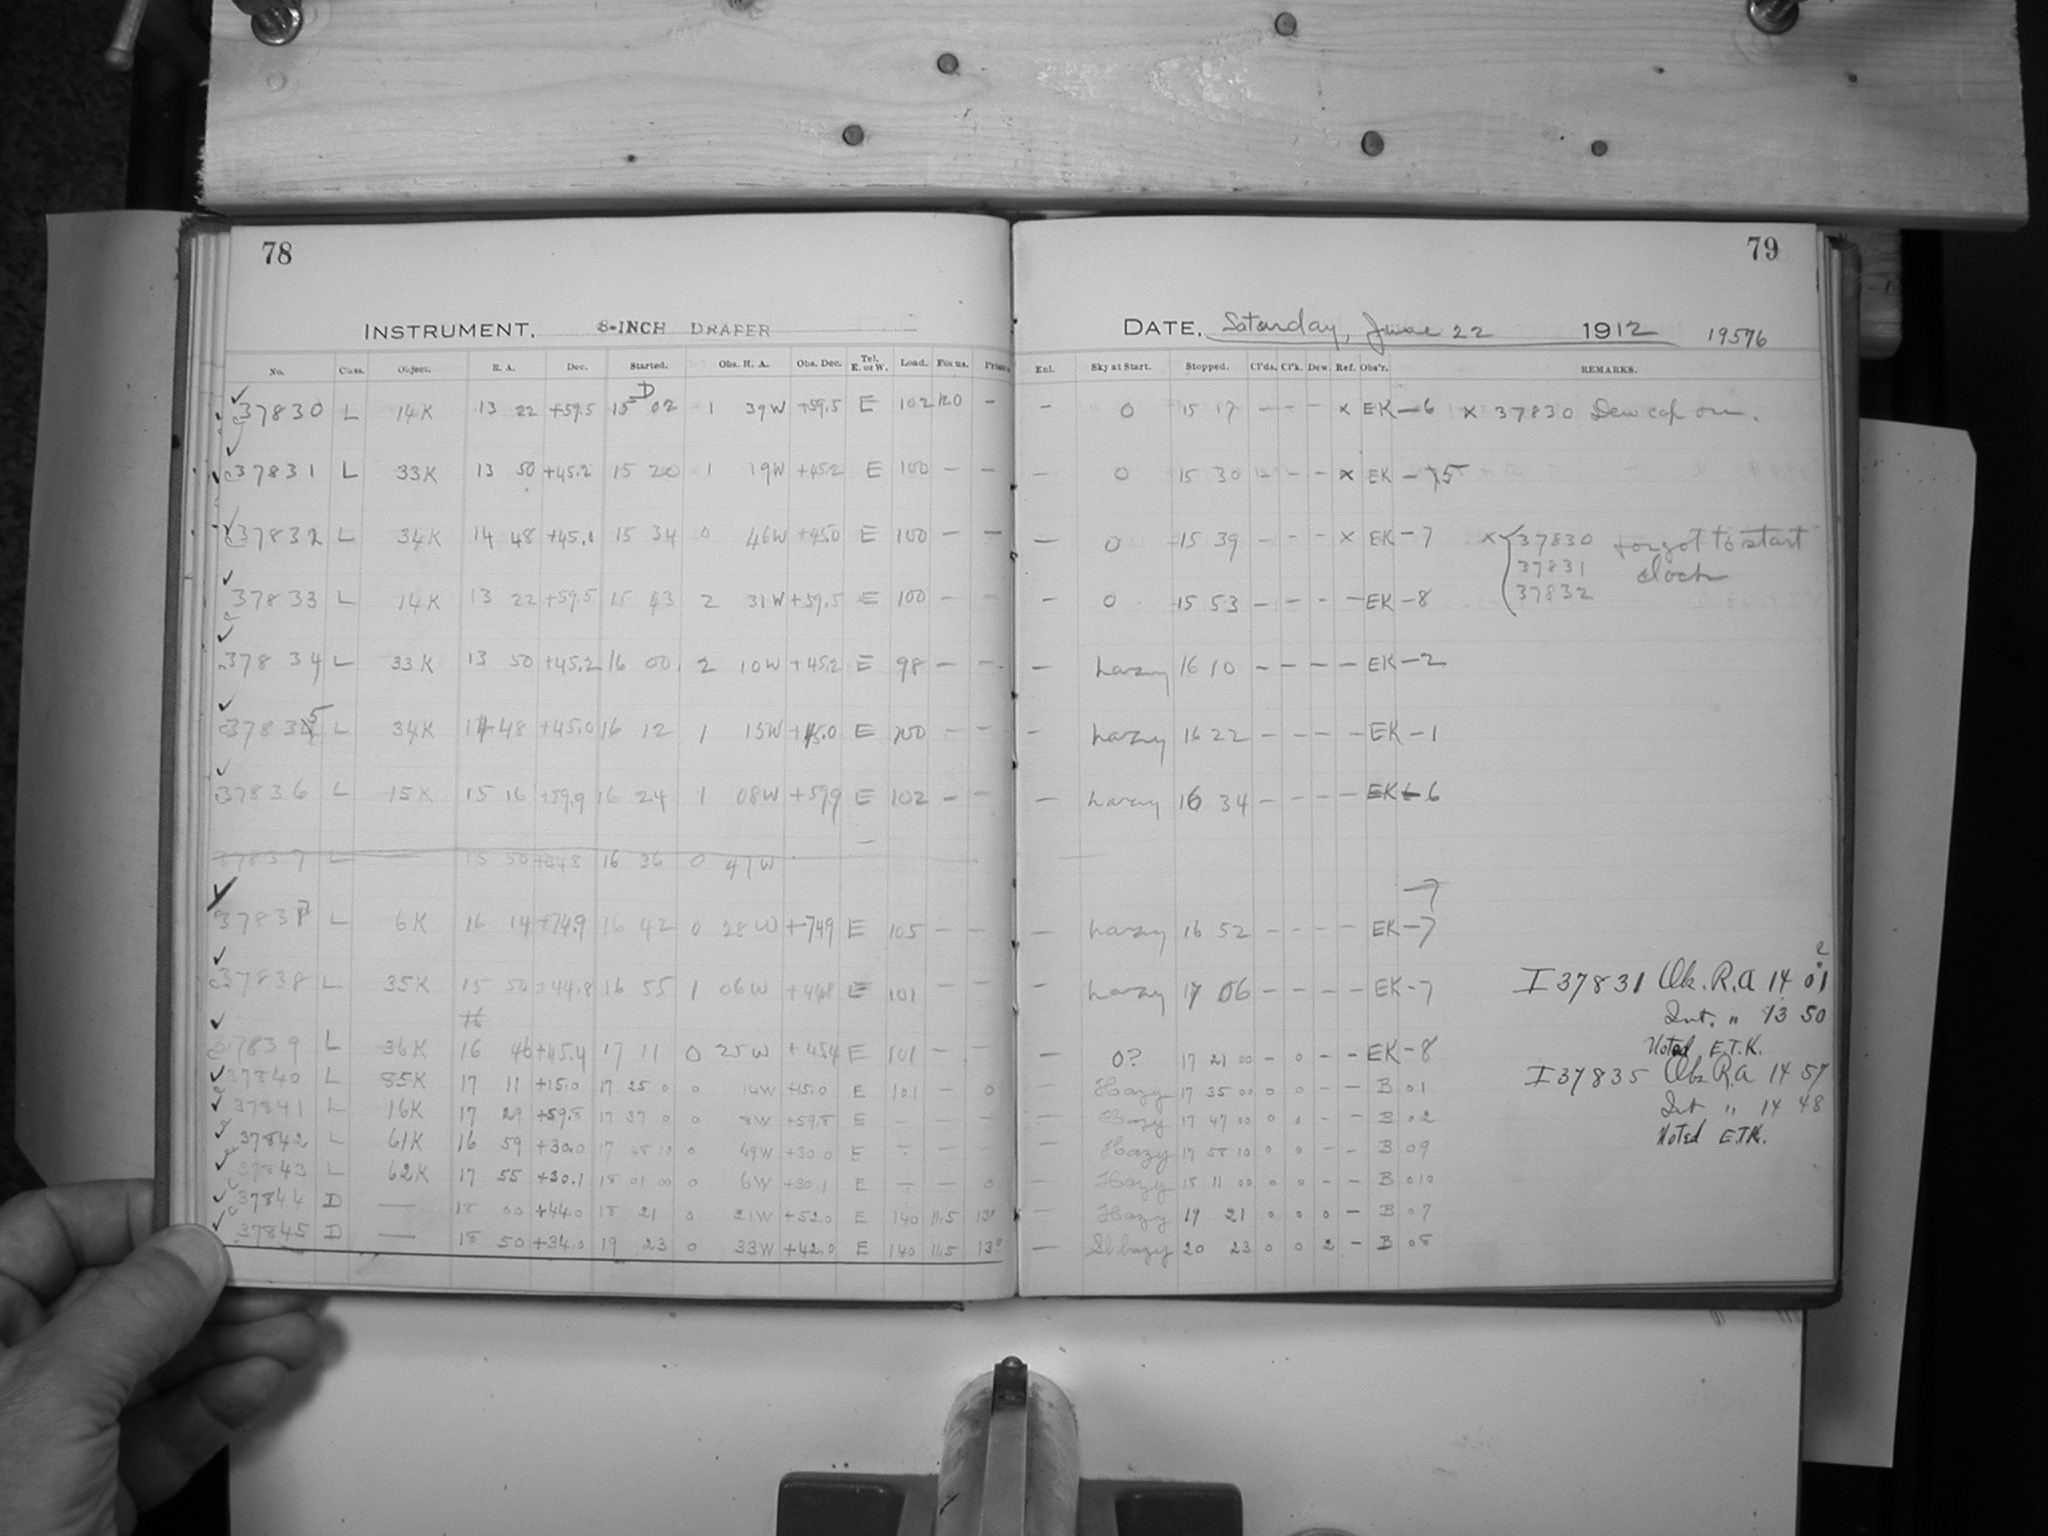 78
INSTRUMENT. 8-INCH DRAPER
No. Class. Object. R. A. Dec. Started. Obs. H. A. Obs. Dec. Tel. E. or W. Load. Focus. Prism.
37830 L 14K 13 22 +59.5 15 02 1 39W +59.5 E 102 12.0 -
37831 L 33K 13 50 +45.2 15 20 1 19W +45.2 E 100 - -
37832 L 34K 14 48 +45.1 15 34 0 46W +45.0 E 100 - -
37833 L 14K 13 22 +59.5 15 43 2 31W +59.5 E 100 - -
37834 L 33K 13 50 +45.2 16 00 2 10W +45.2 E 98 - -
37835 L 34K 14 48 +45.0 16 12 1 15W +45.0 E 100 - -
37836 L 15K 15 16 +59.9 16 24 1 08W +59.9 E 102 - -
37837 L — 15 50 +44.8 16 36 0 47W
37837 L 6K 16 14 +74.9 16 42 0 28W +74.9 E 105 - -
37838 L 35K 15 50 +44.8 16 55 1 06W +44.8 E 101 - -
16
37839 L 36K 16 46 +45.4 17 11 0 25W +45.4 E 101 - -
37840 L 85K 17 11 +15.0 17 25 0 0 14W +15.0 E 101 - 0
37841 L 16K 17 29 +59.8 17 37 0 0 8W +59.8 E - - -
37842 L 61K 16 59 +30.0 17 48 10 0 49W +30.0 E - - -
37843 L 62K 17 55 +30.1 18 01 00 0 6W +30.1 E - - 0
37844 D — 18 00 +44.0 18 21 0 21W +52.0 E 140 11.5 13°
37845 D — 18 50 +34.0 19 23 0 33W +42.0 E 140 11.5 13°
79
DATE. Saturday, June 22 1912 19576
Enl. Sky at Start. Stopped. Cl'ds. Cl'k. Dew. Ref. Obs'r. REMARKS.
- 0 15 17 - - - x EK -6 x 37830 Dew cap on.
- 0 15 30 - - - x EK -5
- 0 15 39 - - - x EK -7 x 37830 forgot to start
37831 clock
37832
- 0 15 53 - - - - EK -8
- hazy 16 10 - - - - EK -2
- hazy 16 22 - - - - EK -1
- hazy 16 34 - - - - EK -6
-7
- hazy 16 52 - - - - EK -7
- hazy 17 06 - - - - EK -7
I 37831 Obs. R.A 14 01
2
Int. " 13 50
Noted E.T.K.
- 0? 17 21 00 - 0 - - EK -8
I 37835 Obs R.A 14 57
Int " 14 48
Noted E.T.K.
- Hazy 17 35 00 0 0 - - B 01
- Hazy 17 47 00 0 0 - - B 02
- Hazy 17 58 10 0 0 - - B 09
- Hazy 18 11 00 0 0 - - B 010
- Hazy 19 21 0 0 0 - B 07
- Sl hazy 20 23 0 0 2 - B 08